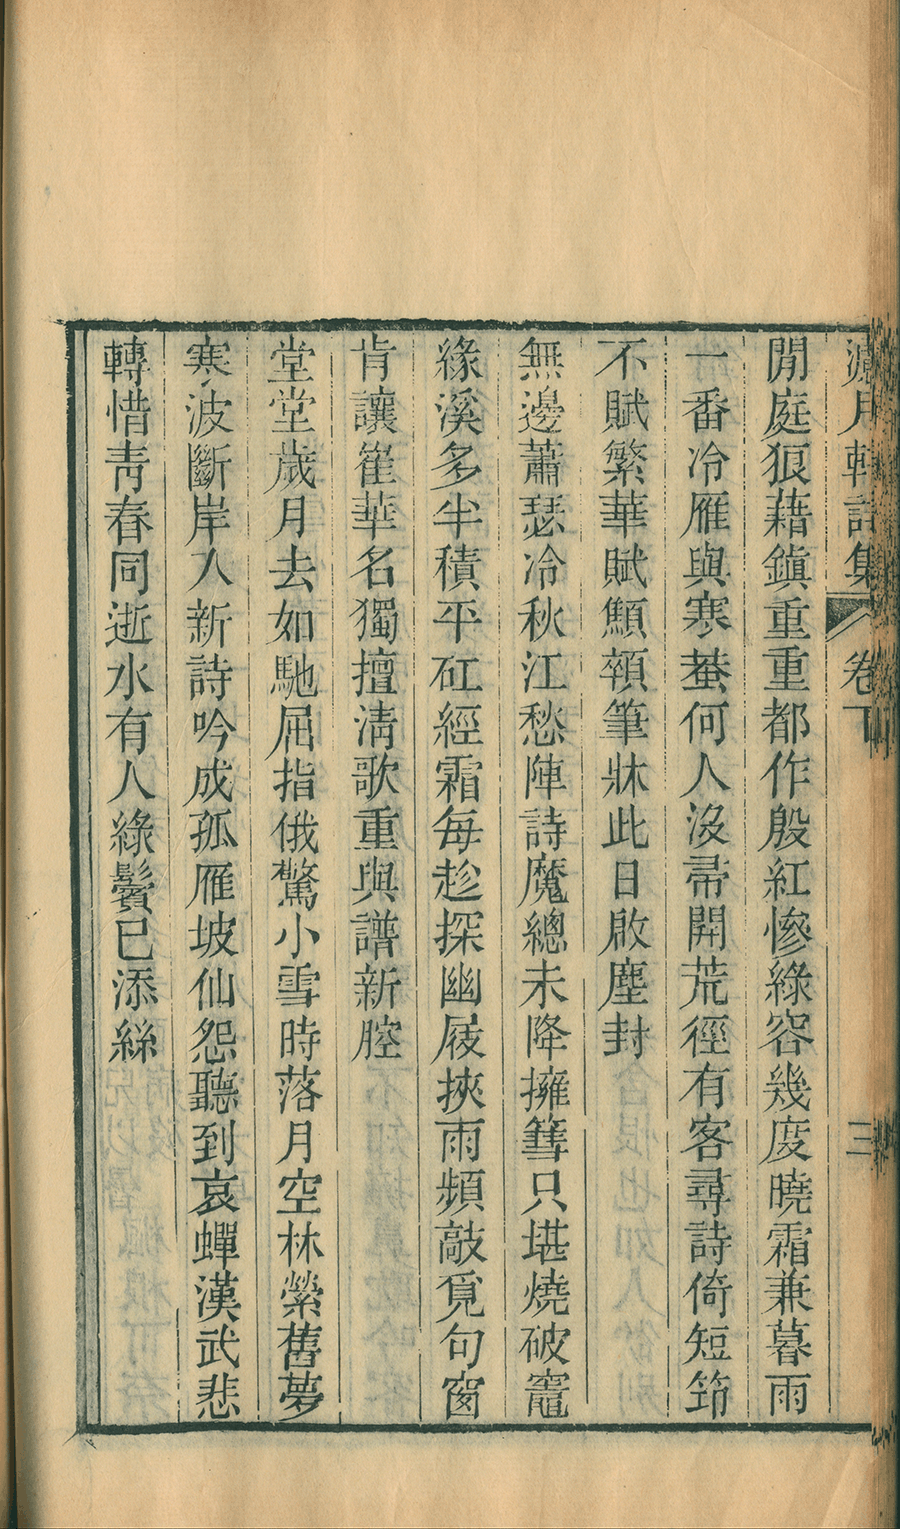 濾月軒詩集 卷下 三
閒庭狼藉鎮重重都作殷紅慘綠容幾度曉霜兼暮雨
一番冷雁與寒蛩何人沒帚開荒徑有客尋詩倚短筇
不賦繁華賦顦顇筆牀此日啟塵封
無邊蕭瑟冷秋江愁陣詩魔總未降擁篲只堪燒破竈
緣溪多半積平矼經霜每趁探幽屐挾雨頻敲覓句窗
肯讓崔華名獨擅清歌重與譜新腔
堂堂歲月去如馳屈指俄驚小雪時落月空林縈舊夢
寒波斷岸入新詩吟成孤雁坡仙怨聽到哀蟬漢武悲
轉惜青春同逝水有人綠鬢已添絲